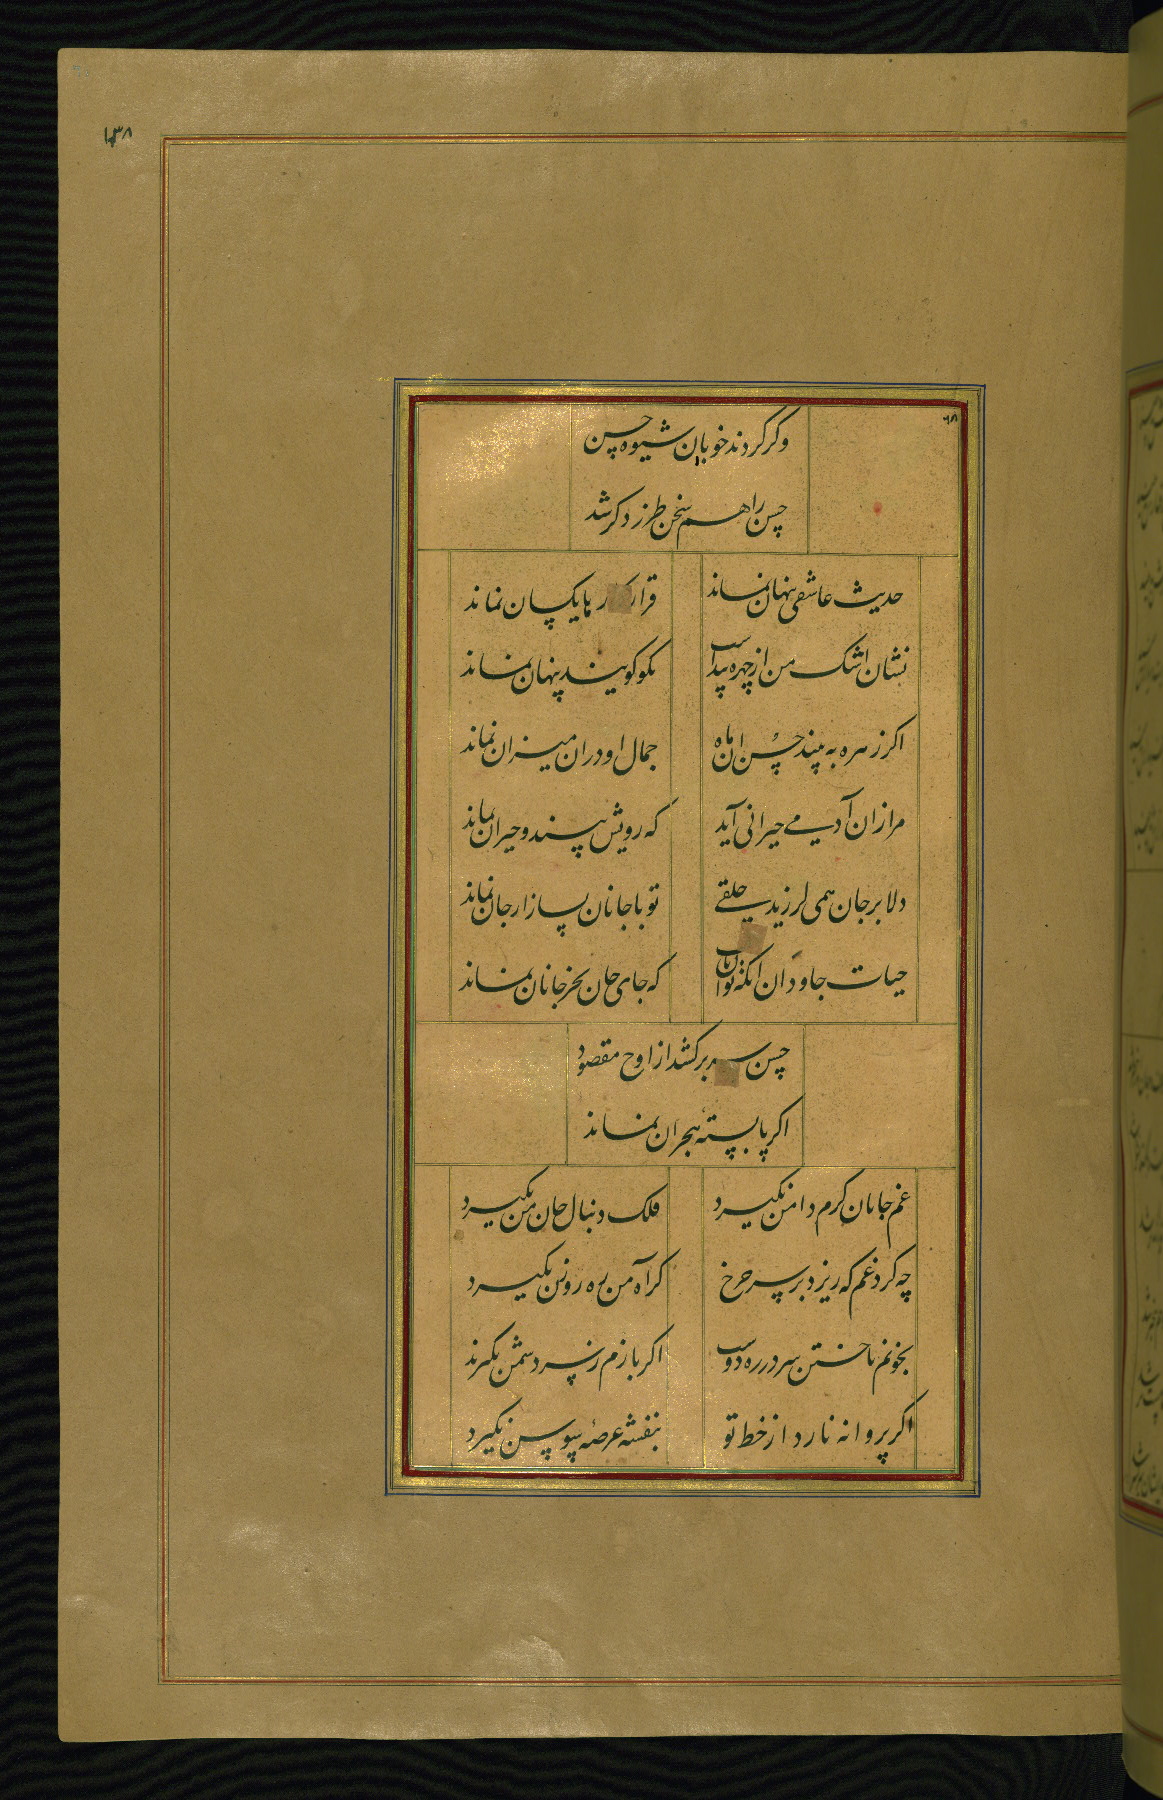 ۱۳۸
۶۸
وکر کردند خوبان شیوه حسن
حسن را هم سخن طرز دکر شد
حدیث عاشقی پنهان نماند
قرار ما یکسان نماند
نشان اشک من از چهره پیداست
نکو کویند پنهان نماند
اکر زهره به بیند حسن ان ماه
جمال او دران میزان نماند
مرا زان آدمی حیرانی آید
که رویش بیند و حیران نماند
دلا بر جان همی لرزید حلقی
تو با جانان بساز ار جان نماند
حیات جاودان انکه توان یافت
که جای جان بجز جانان نماند
حسن سر برکشد از اوج مقصود
اکر پابسته هجران نماند
غم جانان کرم دامن نکیرد
فلک دنبال جان من نکیرد
چه کرد غم که ریزد بر سر چرخ
کر آه من ره روزن نکیرد
بخونم تاختن سر در ره دوست
اکر بازم ز سر دشمن نکیرد
اکر پروانه نارد از خط تو
بنفشه عرصه سوسن نکیرد